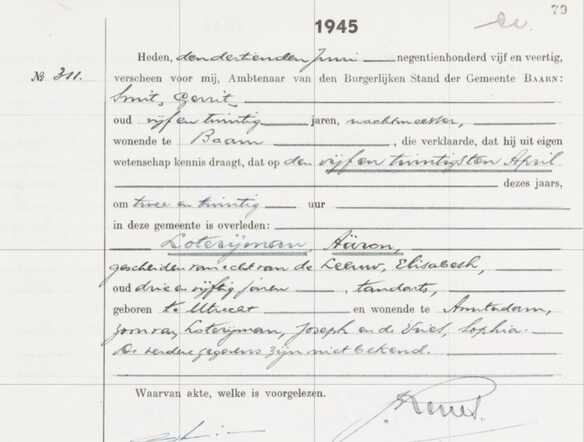 79
1945
Heden, den dertienden Juni negentienhonderd vijf en veertig,
No 311. verscheen voor mij, Ambtenaar van den Burgerlijken Stand der Gemeente BAARN:
Smit, Gerrit,
oud vijf en twintig jaren, nachtmeester,
wonende te Baarn, die verklaarde, dat hij uit eigen
wetenschap kennis draagt, dat op den vijf en twintigsten April
dezes jaars,
om twee en twintig uur
in deze gemeente is overleden:
Loterijman, Aäron,
gescheiden van echt van de Leeuw, Elisabeth,
oud drie en vijftig jaren, tandarts,
geboren te Utrecht en wonende te Amsterdam,
zoon van Loterijman, Joseph en de Vries, Sophia.
De verdere gegevens zijn niet bekend.
Waarvan akte, welke is voorgelezen.